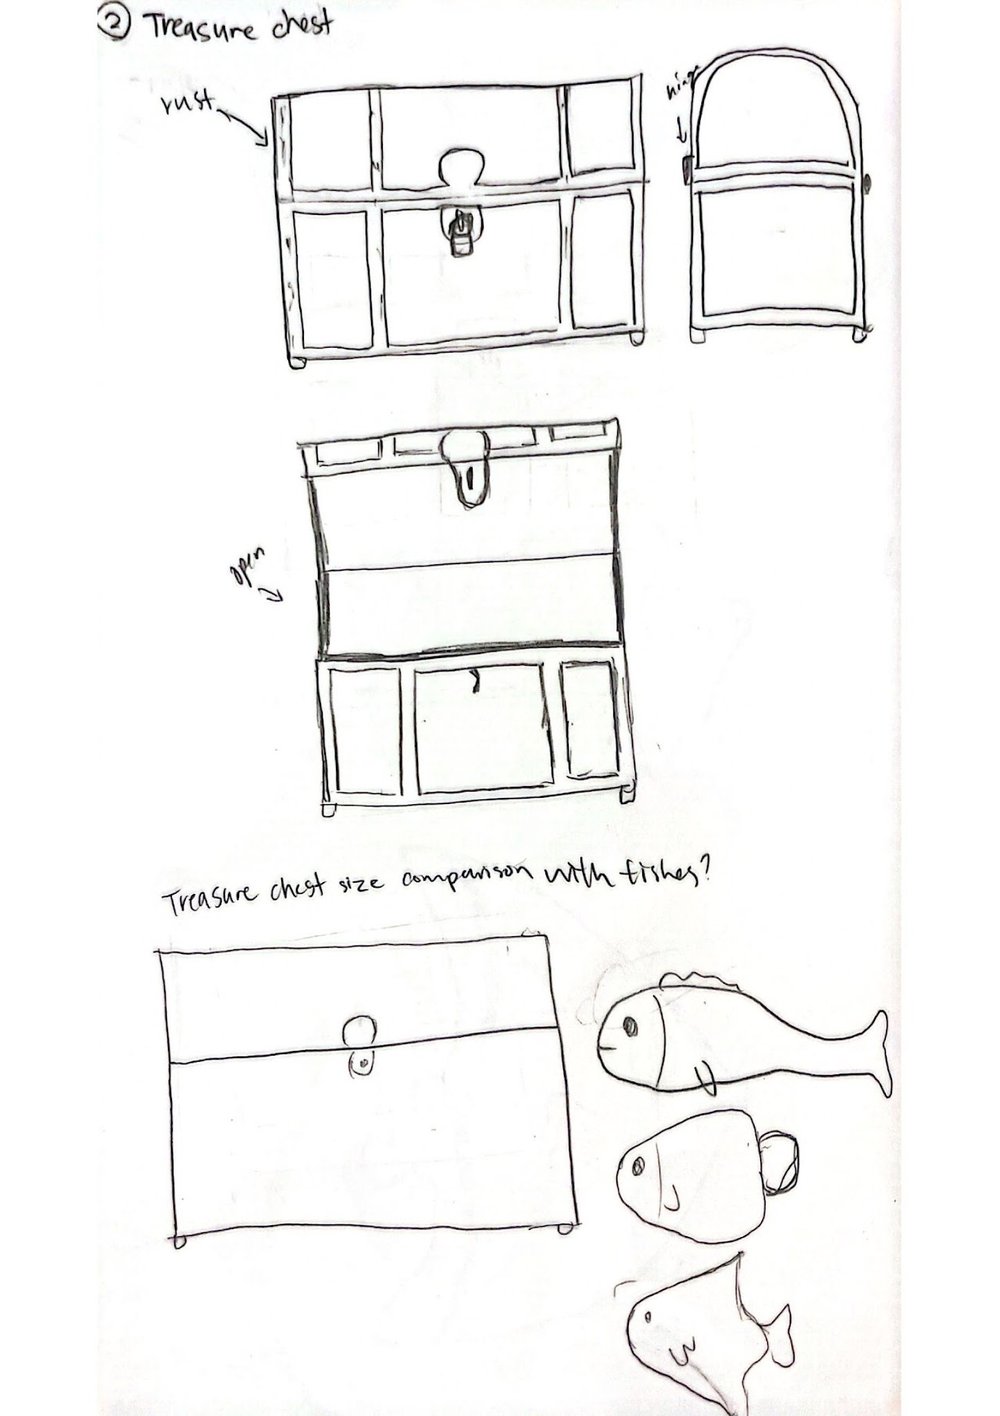 2 Treasure chest
rust
hinge
open
Treasure chest size comparison with fishes?